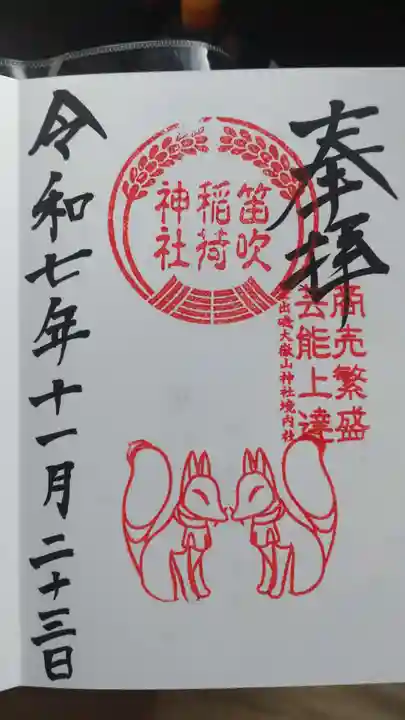 奉拝
商売繁盛
芸能上達
出磯大嶽山神社境内社
笛吹
稲荷
神社
令和七年十一月二十三日